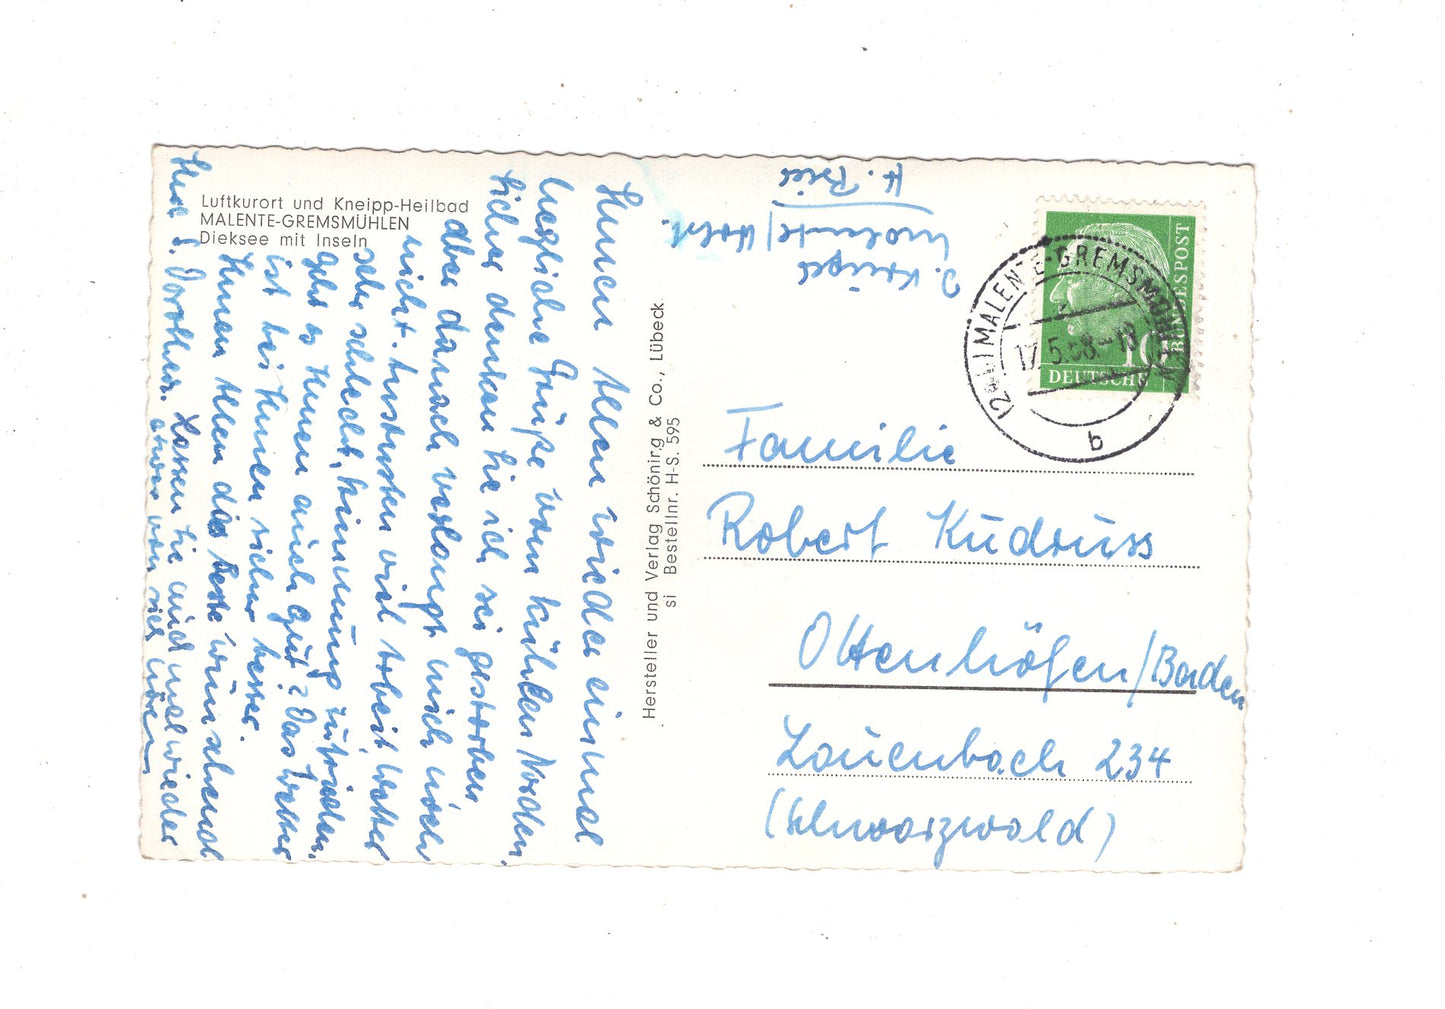 Luftkurort und Kneipp-Heilbad
MALENTE-GREMSMÜHLEN
Dieksee mit Inseln
Ihnen Allen wieder einmal
herzliche Grüße vom kühlen Norden.
Sicher denken Sie ich sei gestorben
aber darnach verlangt mich noch
nicht. Ansonsten viel Arbeit Wetter
sehr schlecht, Stimmung zufrieden.
geht es Ihnen auch gut? Das Wetter
ist bei Ihnen sicher besser.
Ihnen Allen das Beste wünschend
Ihre Dorothea. Lassen Sie auch mal wieder
etwas von sich hören
Hersteller und Verlag Schöning & Co., Lübeck
si Bestellnr. H-S. 595
Malente/Holst.
MALENTE-GREMSMÜHLEN
17.5.58.-18
b
10
DEUTSCHE
BUNDESPOST
Familie
Robert Kudruss
Ottenhöfen/Baden
Lauenbach 234
(Schwarzwald)